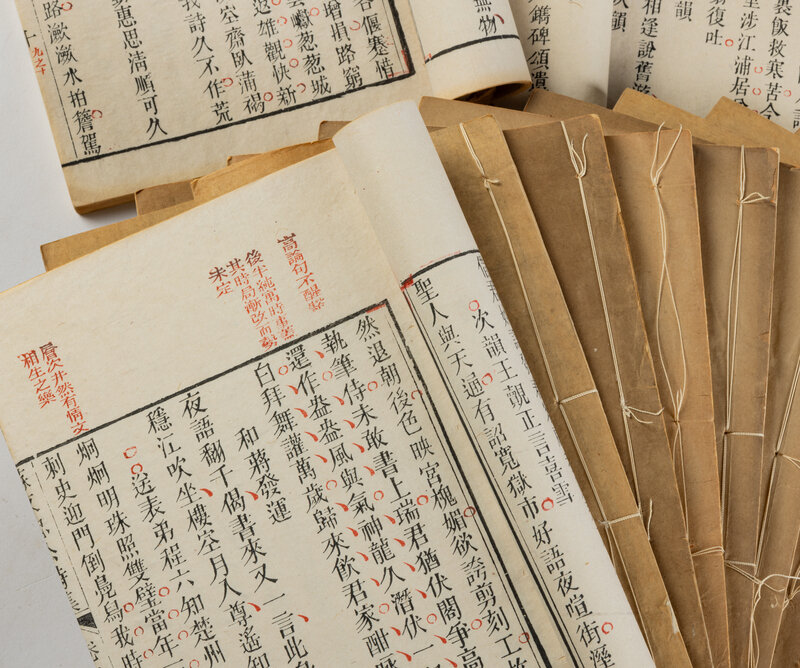 裹飯救寒苦今
涉江浦
復吐
韻
相逢說舊游
鐫碑頌潰
物
偃蹇惜
路窮
葱葱城
雄觀快新
空齋臥蒲褐
我詩久不作荒
惠思清順可久
路潋潋水拍簷駕
次韻王覿正言喜雪
聖人與天通有詔寬獄市好語夜喧街濕
然退朝後色映宮槐媚欲誇剪刻工
執筆侍未敢書上瑞君猶伏閤爭高
還作盎盎風與氣神龍久潛伏一
白拜舞讙萬歲歸來飲君家酣
和蔣發運
夜語翻千偈書來又一言此身
穩江吹坐樓空月入尊遙知
送表弟程六知楚州
炯炯明珠照雙璧當年三
刺史迎門倒鳧舄我時
高論句不醒豁
後半純寓時事蓋
其時局漸改而勢
未定
層次井然有情文
相生之樂